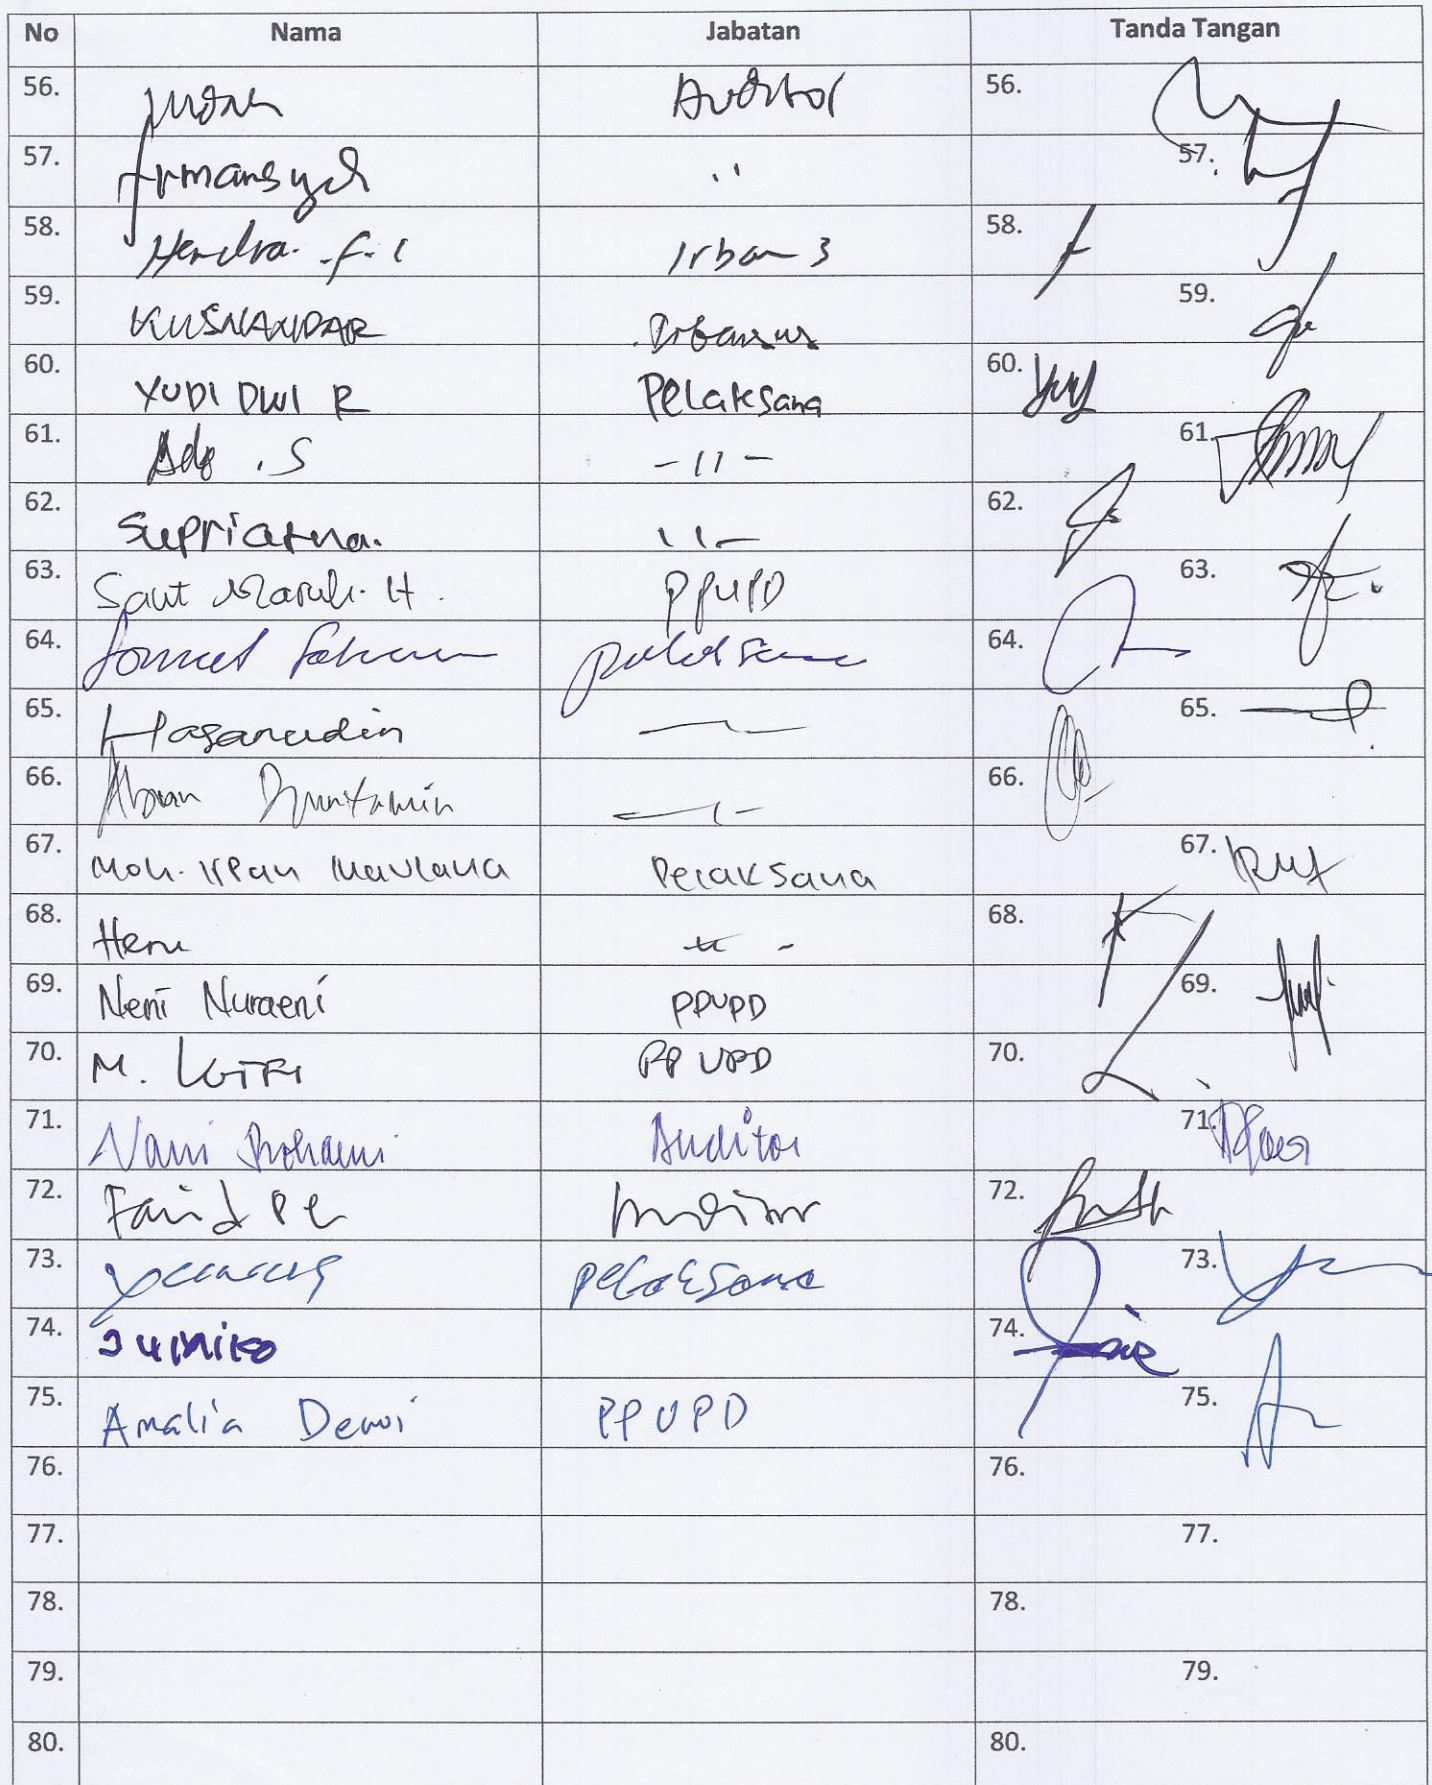 No Nama Jabatan Tanda Tangan
56. Auditor 56.
57. Armansyah '' 57.
58. Hendra. f. 1 Irban 3 58.
59. KUSNANDAR Irbansus 59.
60. YUDI DWI R Pelaksana 60.
61. Ade . S - 11 - 61.
62. Supriatna. 11- 62.
63. Saut Maruli. H. PPUPD 63.
64. 64.
65. Hasanudin 65.
66. 66.
67. Moh. Irpan Maulana Pelaksana 67.
68. Heru 68.
69. Neni Nuraeni PPUPD 69.
70. M. Lutfi PPUPD 70.
71. Nani Rohaeni Auditor 71.
72. Farid Auditor 72.
73. pelaksana 73.
74. 74.
75. Amalia Dewi PPUPD 75.
76. 76.
77. 77.
78. 78.
79. 79.
80. 80.